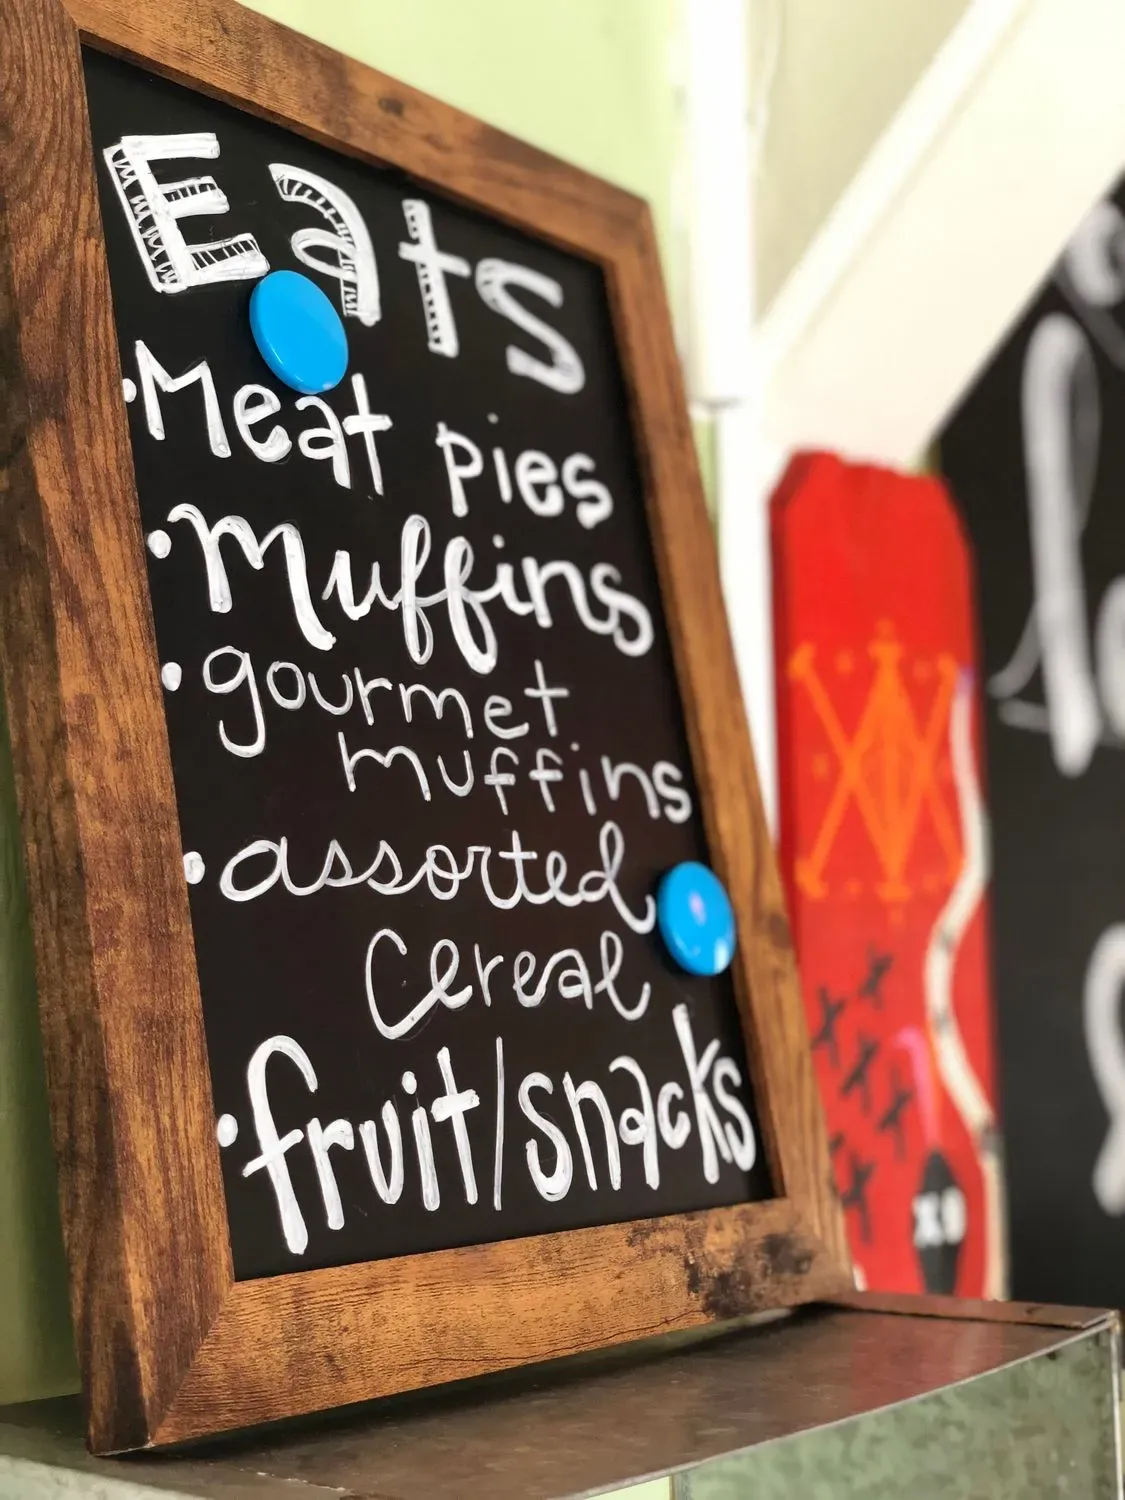 Eats
• Meat pies
• Muffins
• gourmet
muffins
• assorted
cereal
• fruit/snacks
XO